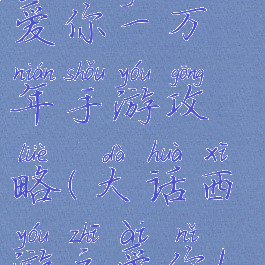 爱你一万
nián shǒu yóu gōng
年手游攻
lüè dà huà xī
略(大话西
yóu zhī ài nǐ
游之爱你